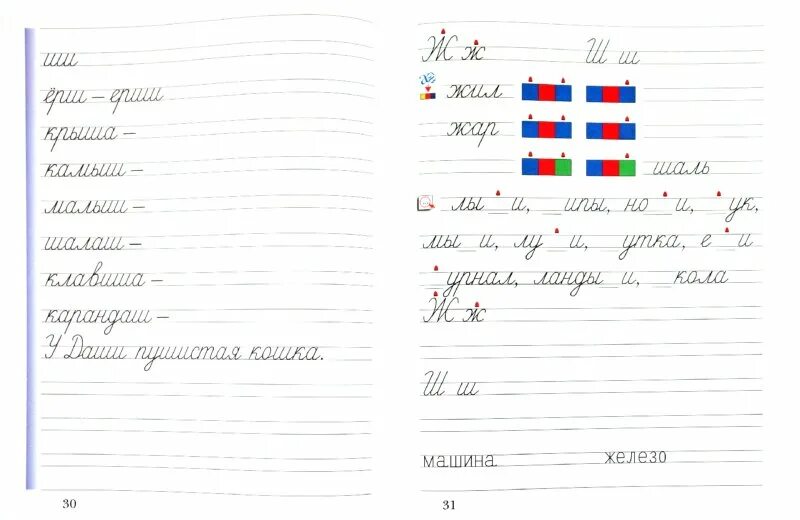 ши
ёрш – ерши
крыша –
камыш –
малыш –
шалаш –
клавиша –
карандаш –
У Даши пушистая кошка.
30
Ж ж Ш ш
жил
жар
шаль
лы_и, _ипы, но_и, _ук,
мы_и, лу_и, _утка, е_и
_урнал, ланды_и, _кола
Ж ж
Ш ш
машина железо
31